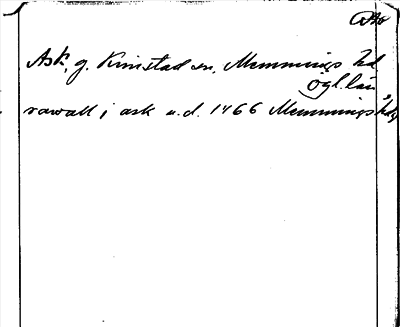 Ask, g. Kimstad sn, Memmings hd
ögl. län
rawall i ask u.d. 1466 Memmings hdg